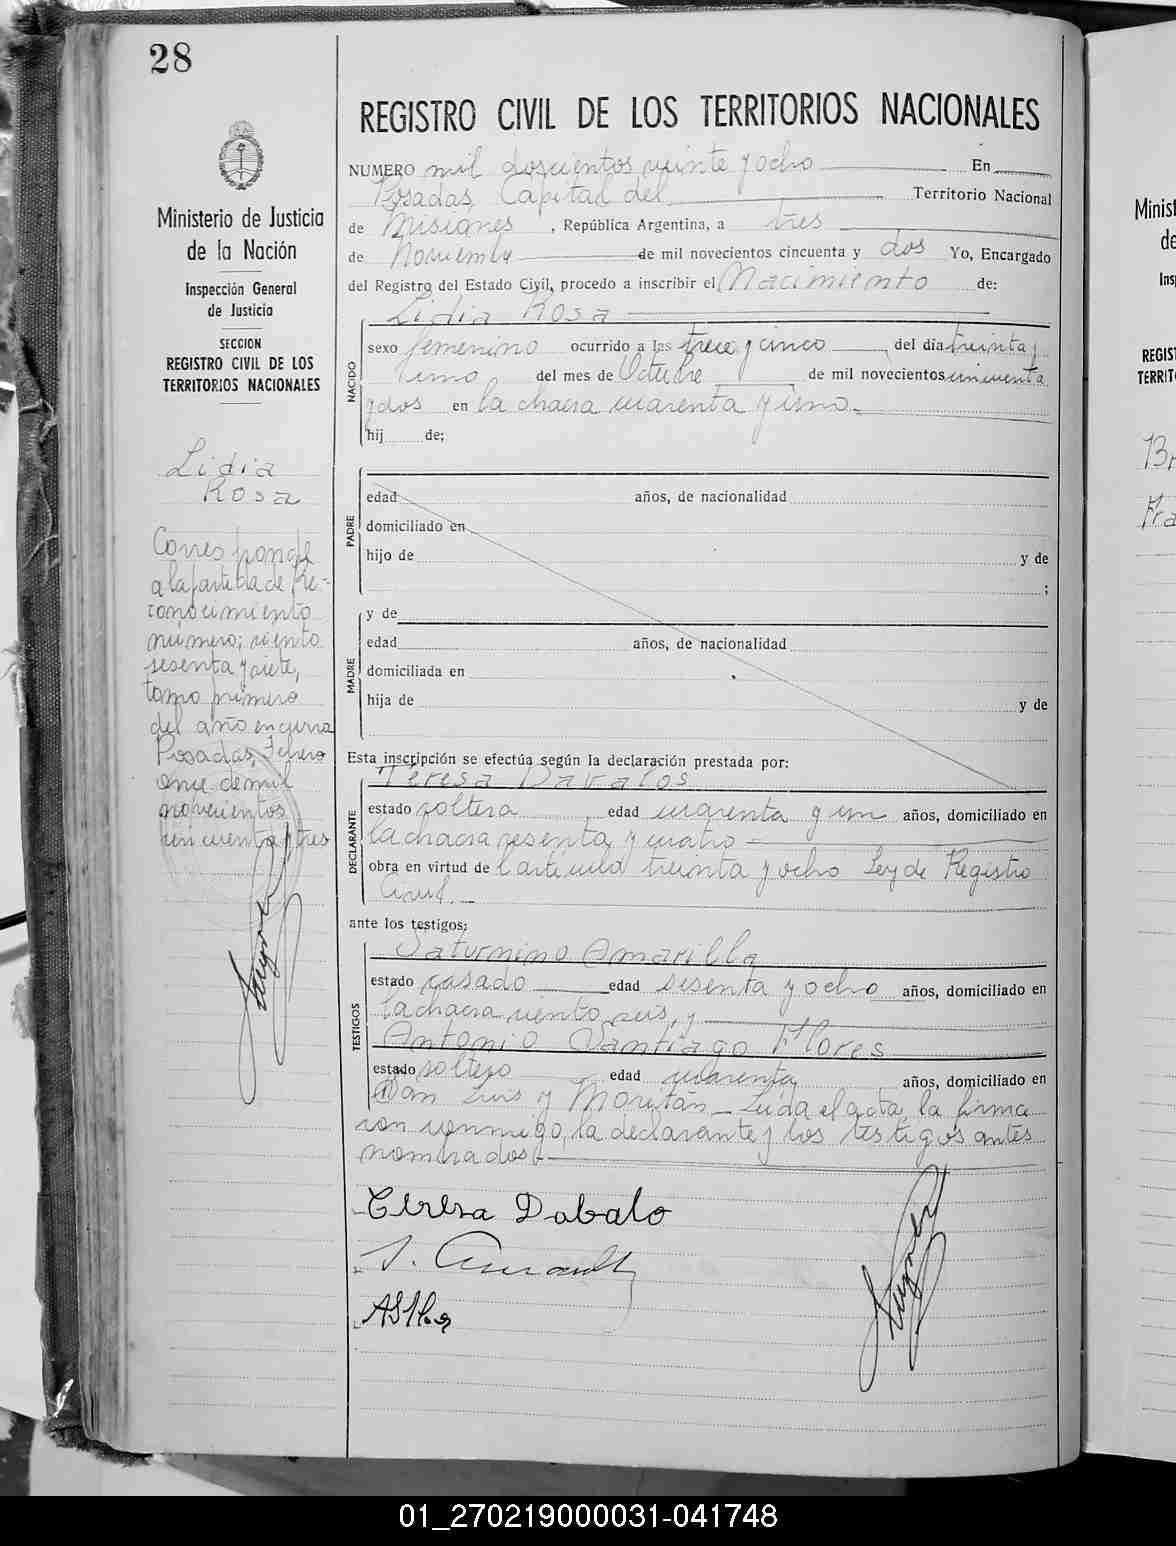 28
REGISTRO CIVIL DE LOS TERRITORIOS NACIONALES
Ministerio de Justicia
de la Nación
Inspección General
de Justicia
SECCION
REGISTRO CIVIL DE LOS
TERRITORIOS NACIONALES
Lidia
Rosa
Corresponde
a la partida de Re-
conocimiento
número; ciento
sesenta y siete,
tomo primero
del año en curso
Posadas, Febrero
once de mil
novecientos
cincuenta y tres
NUMERO mil doscientos veinte y ocho En
Posadas, Capital del Territorio Nacional
de Misiones, República Argentina, a tres
de Noviembre de mil novecientos cincuenta y dos Yo, Encargado
del Registro del Estado Civil, procedo a inscribir el Nacimiento de:
Lidia Rosa
NACIDO
sexo femenino ocurrido a las trece y cinco del día treinta y
uno del mes de Octubre de mil novecientos cincuenta
y dos en la chacra cuarenta y uno.
hij de;
PADRE
edad años, de nacionalidad
domiciliado en
hijo de y de
;
MADRE
y de
edad años, de nacionalidad
domiciliada en
hija de y de
Esta inscripción se efectúa según la declaración prestada por:
Teresa Davalos
DECLARANTE
estado soltera edad cuarenta y un años, domiciliado en
la chacra sesenta y cuatro
obra en virtud de l'artículo treinta y ocho Ley de Registro
Civil.
ante los testigos:
Saturnino Amarilla
TESTIGOS
estado casado edad sesenta y ocho años, domiciliado en
la chacra ciento seis, y
Antonio Santiago Flores
estado soltero edad cuarenta años, domiciliado en
San Luis y Moritán_ Leida el acta, la firma
con conmigo, la declarante y los testigos antes
nombrados.
Teresa Dabalo
01_270219000031-041748